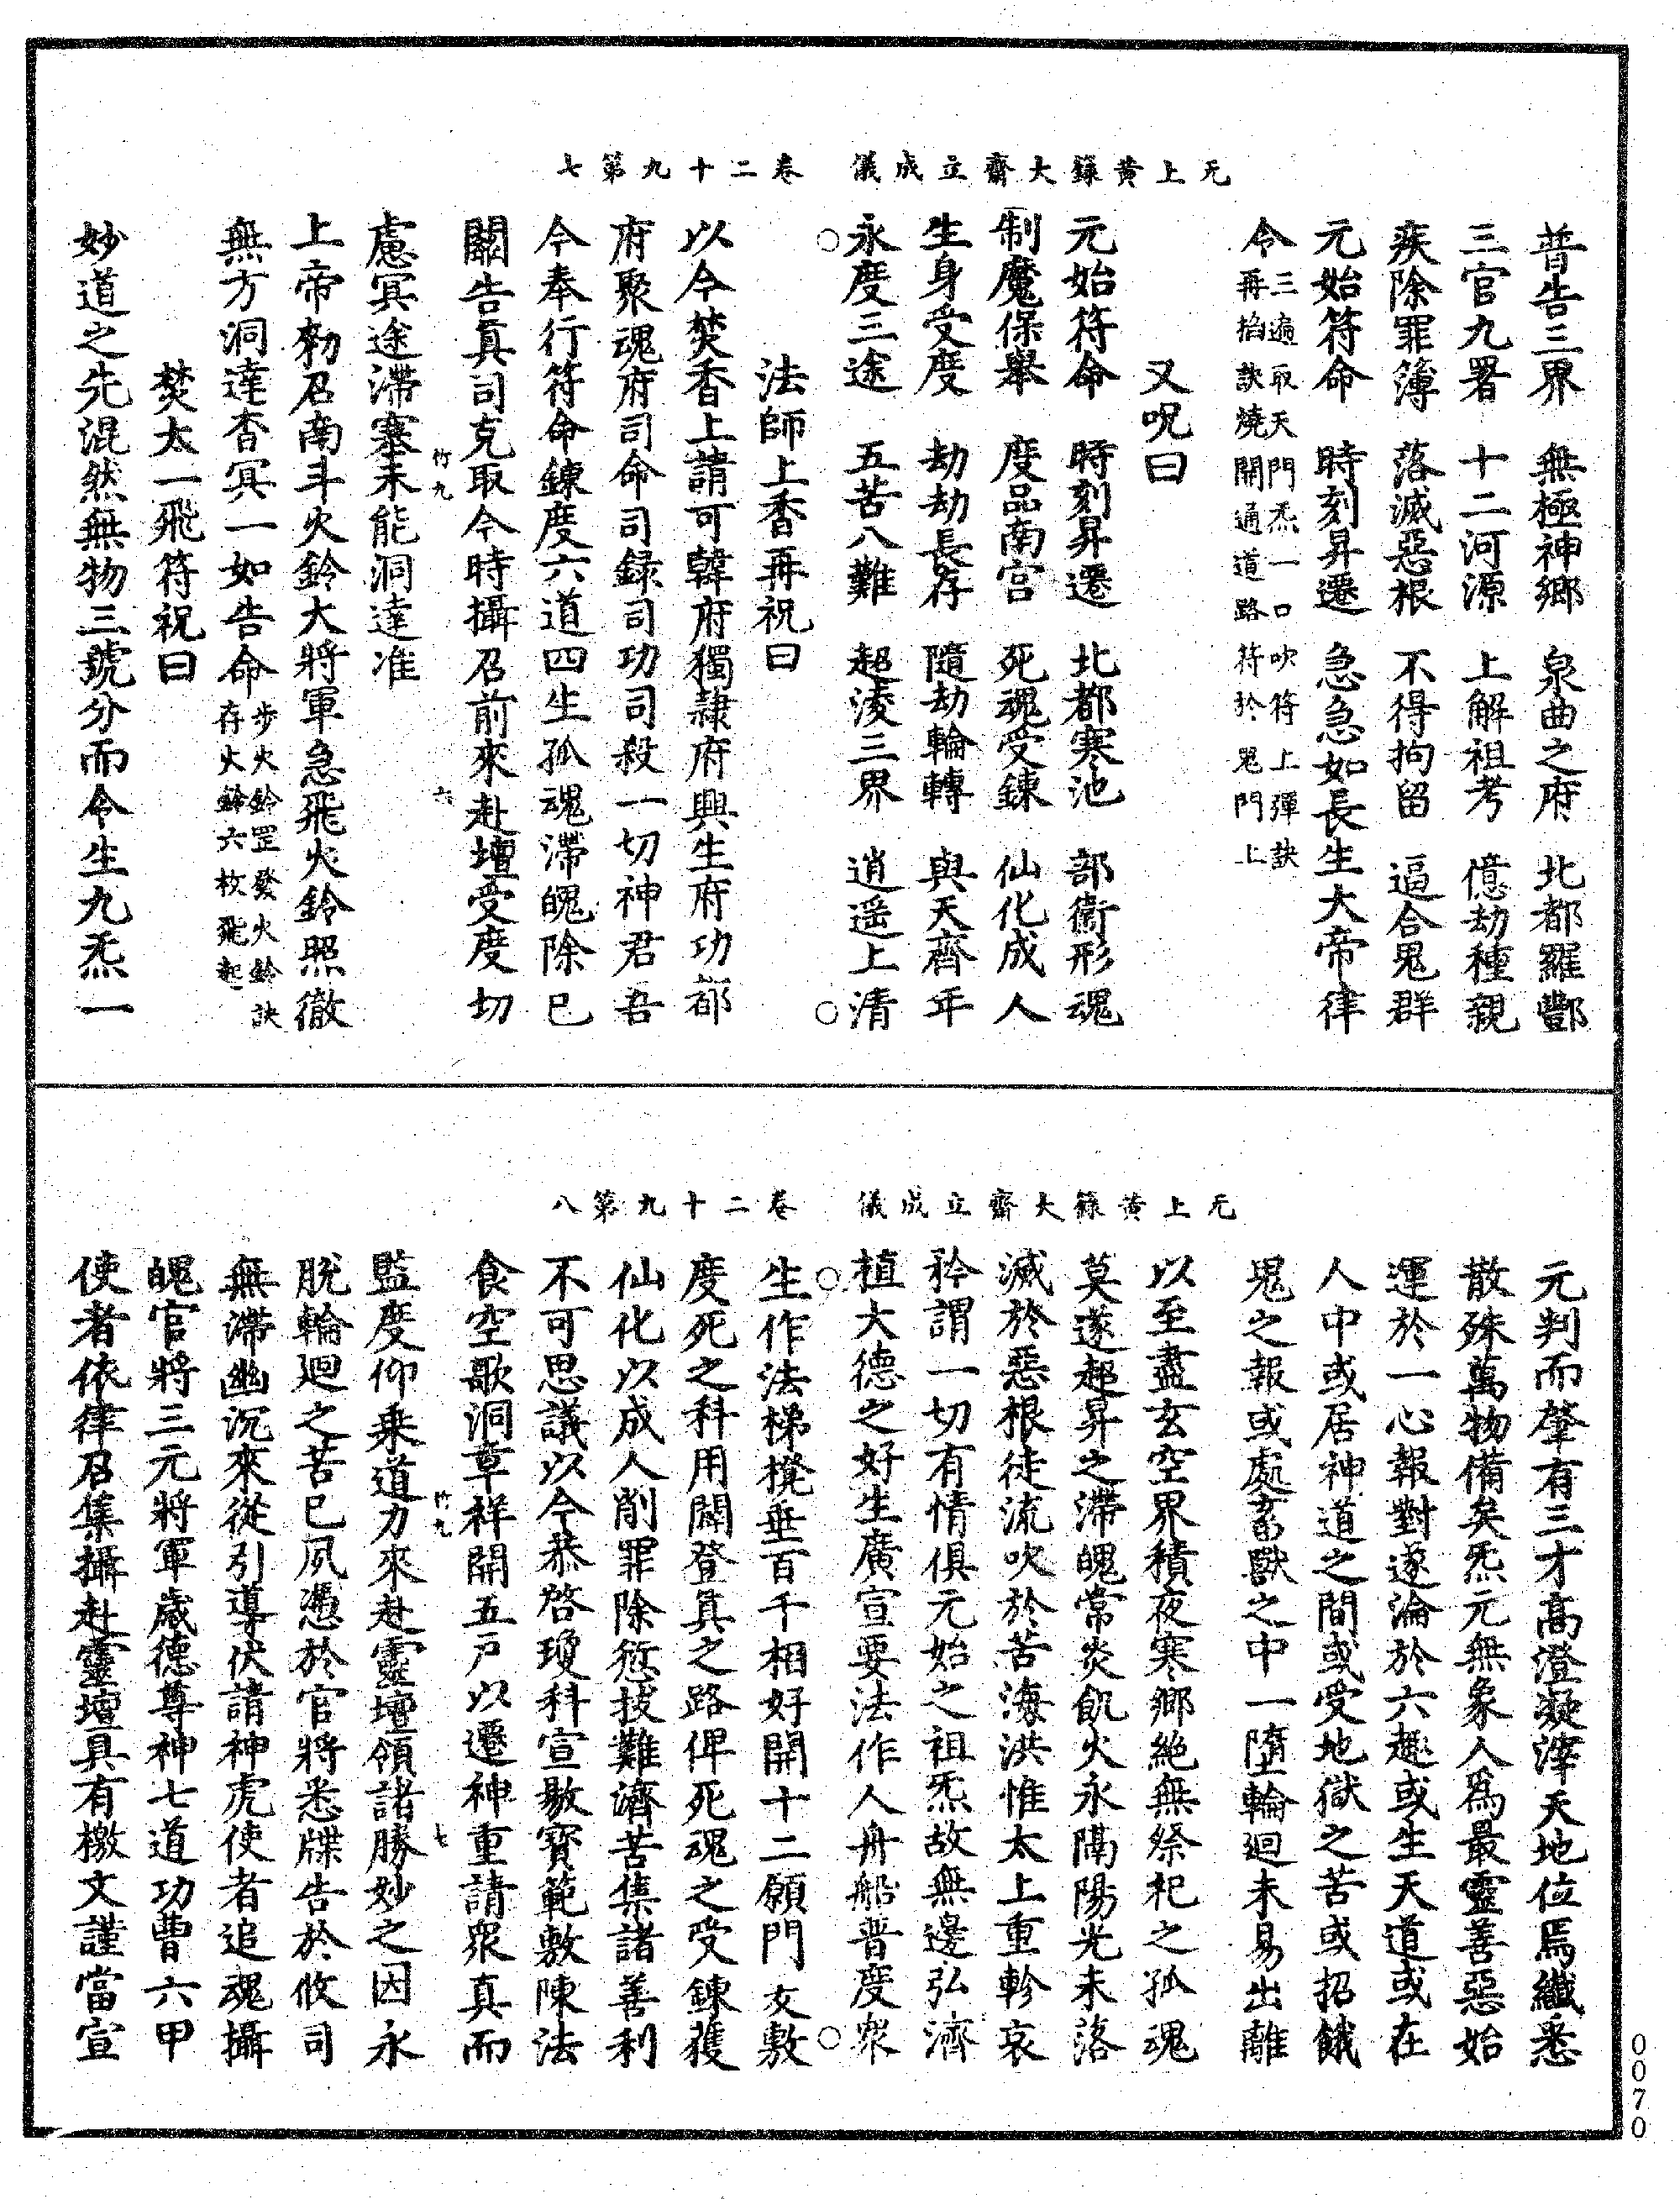 无上黃籙大齋立成儀　卷二十九第七
普告三界　無極神鄉　泉曲之府　北都羅酆
三官九署　十二河源　上解祖考　億劫種親
疾除罪簿　落滅惡根　不得拘留　逼合鬼群
元始符命　時刻昇遷　急急如長生大帝律
令三遍取天門炁一口吹符上彈訣
再掐訣燒開通道路符於鬼門上
又呪曰
元始符命　時刻昇遷　北都寒池　部衛形魂
制魔保舉　度品南宮　死魂受鍊　仙化成人
生身受度　劫劫長存　隨劫輪轉　與天齊年
永度三途　五苦八難　超淩三界　逍遥上清
法師上香再祝曰
以今焚香上請可韓府獨隷府興生府功都
府聚魂府司命司錄司功司殺一切神君吾
今奉行符命鍊度六道四生孤魂滯魄除已
關告真司克取今時攝召前來赴壇受度切
竹九　六
慮冥途滯塞未能洞達准
上帝勑召南斗火鈴大將軍急飛火鈴照徹
無方洞達杳冥一如告命步火鈴罡發火鈴訣
存火鈴六枚飛起
焚太一飛符祝曰
妙道之先混然無物三號分而令生九炁一
无上黃籙大齋立成儀　卷二十九第八
元判而肇有三才高澄凝滓天地位焉纖悉
散殊萬物備矣炁元無象人爲最靈善惡始
運於一心報對遂淪於六趣或生天道或在
人中或居神道之間或受地獄之苦或招餓
鬼之報或處畜獸之中一墮輪廻未易出離
以至盡玄空界積夜寒鄉絶無祭祀之孤魂
莫遂超昇之滯魄常炎飢火永隔陽光未落
滅於惡根徒流吹於苦海洪惟太上重軫哀
矜謂一切有情俱元始之祖炁故無邊弘濟
植大德之好生廣宣要法作人舟船普度衆
生作法梯橙垂百千相好開十二願門文敷
度死之科用闢登真之路俾死魂之受鍊獲
仙化以成人削罪除愆拔難濟苦集諸善利
不可思議以今恭啓瓊科宣敭寶範敷陳法
食空歌洞章祥開五戶以遷神重請衆真而
竹九　七
監度仰乗道力來赴靈壇領諸勝妙之因永
脫輪廻之苦已夙憑於官將悉牒告於攸司
無滯幽沉來從引導伏請神虎使者追魂攝
魄官將三元將軍歲德尊神七道功曹六甲
使者依律召集攝赴靈壇具有檄文謹當宣
0070